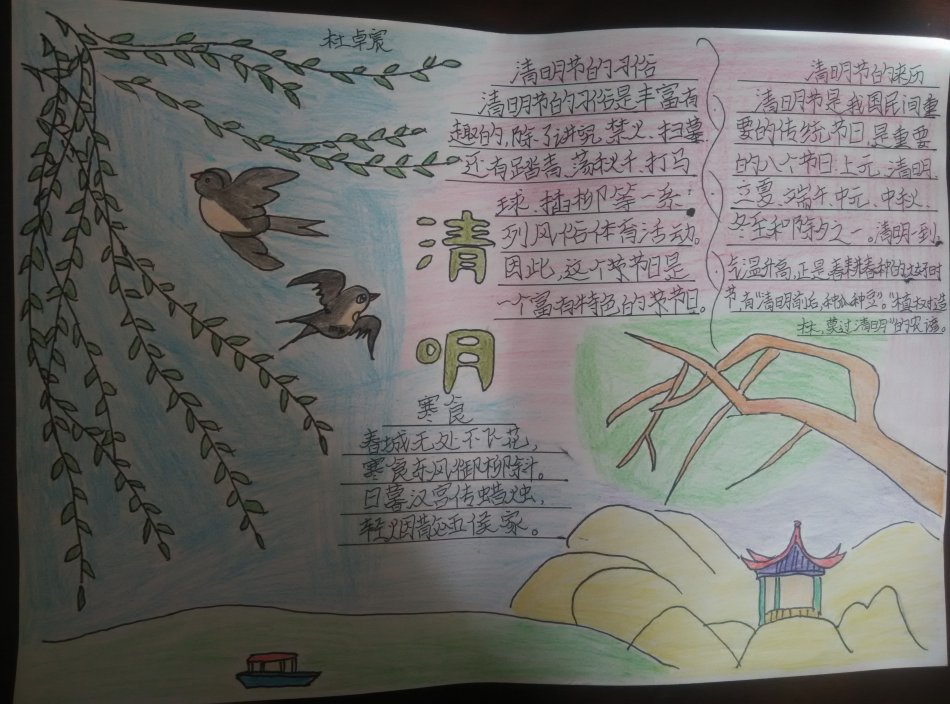 杜卓宸
清明节的习俗
清明节的习俗是丰富有
趣的,除了讲究禁火、扫墓,
还有踏青、荡秋千、打马
球、插柳等一系
列风俗体育活动。
因此,这个节日是
一个富有特色的节日。
清明节的来历
清明节是我国民间重
要的传统节日,是重要
的八个节日上元、清明、
立夏、端午、中元、中秋、
冬至和除夕之一。清明一到,
气温升高,正是春耕春种的大好时
节,有“清明前后,种瓜种豆”。“植树造
林,莫过清明”的农谚。
清
明
寒食
春城无处不飞花,
寒食东风御柳斜。
日暮汉宫传蜡烛,
轻烟散五侯家。